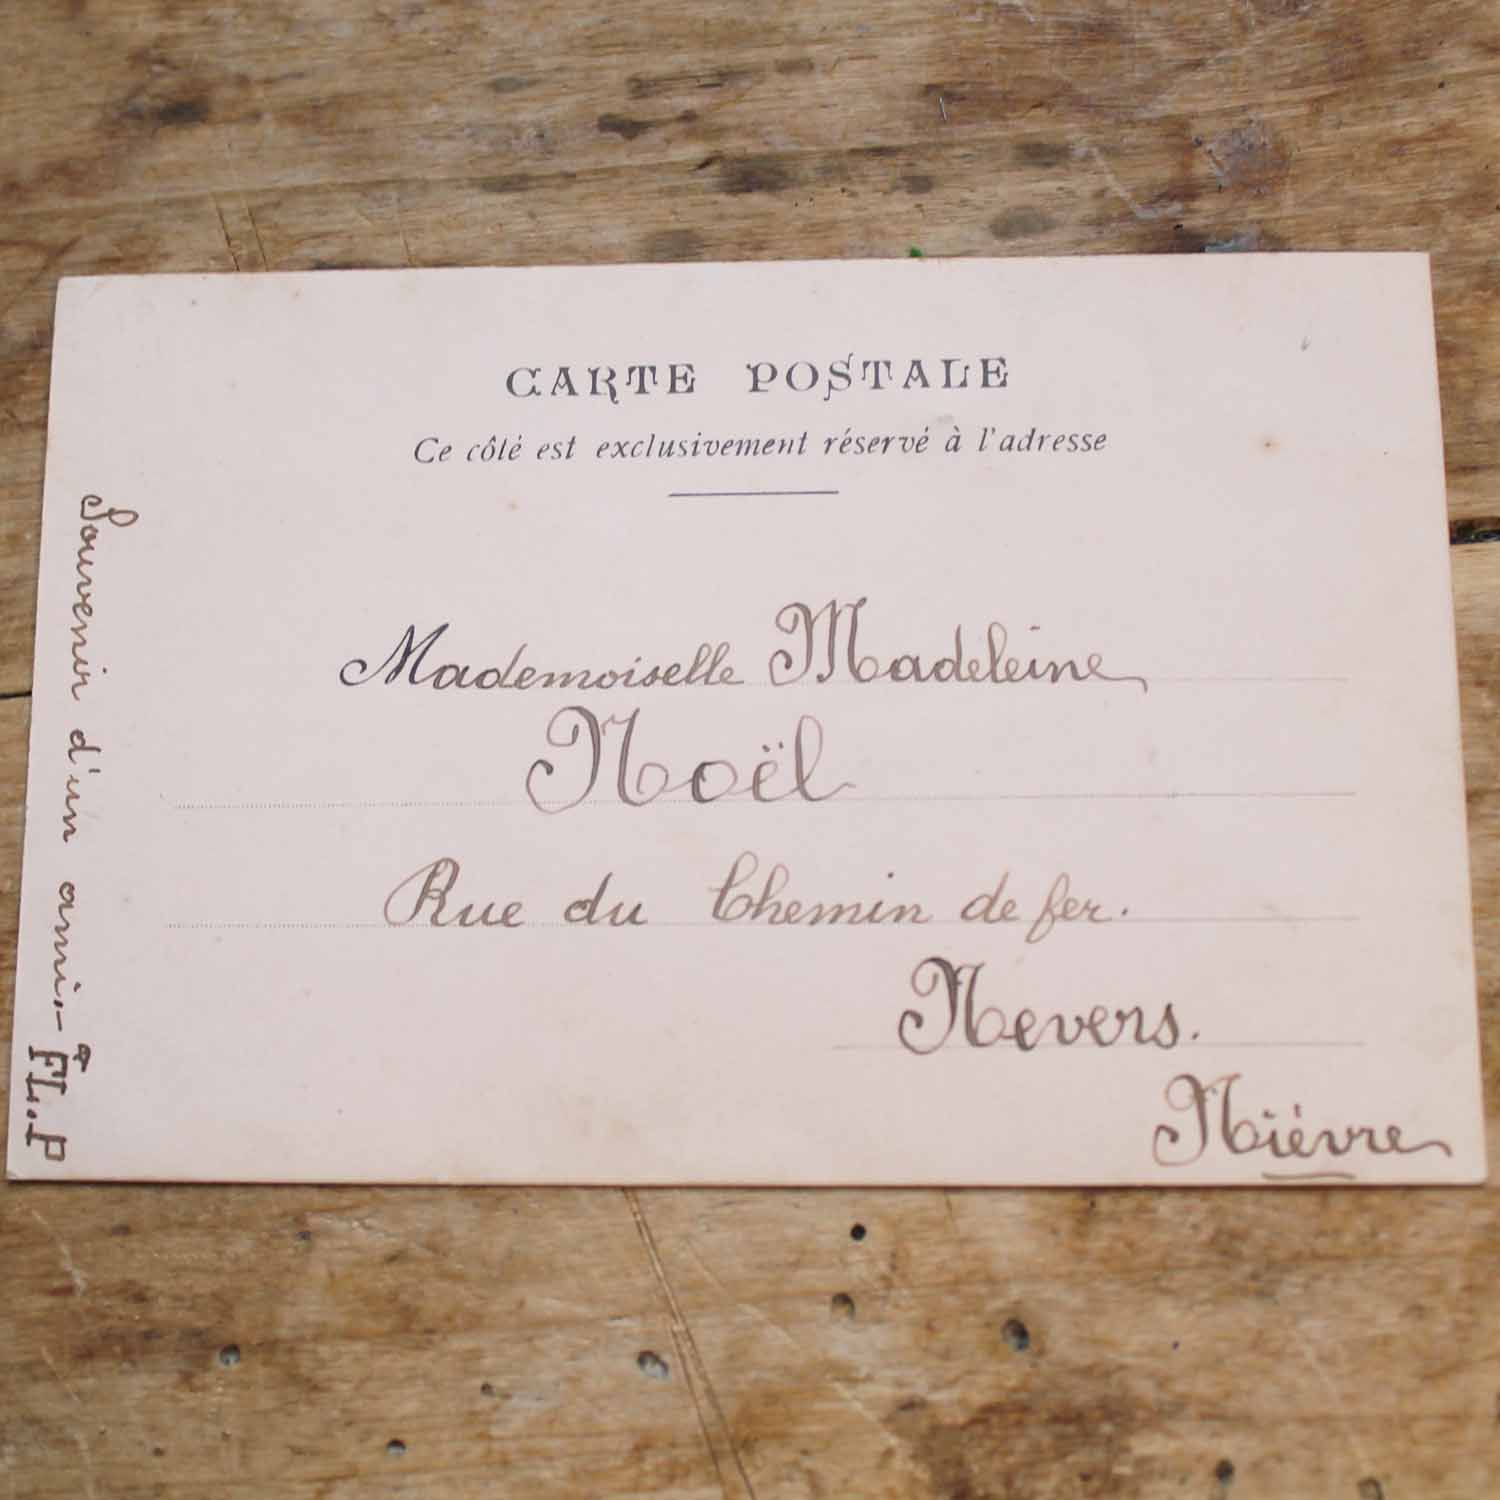 CARTE POSTALE
Ce côté est exclusivement réservé à l'adresse
Mademoiselle Madeleine
Noël
Rue du Chemin de fer.
Nevers.
Nièvre
Souvenir d'un ami.-